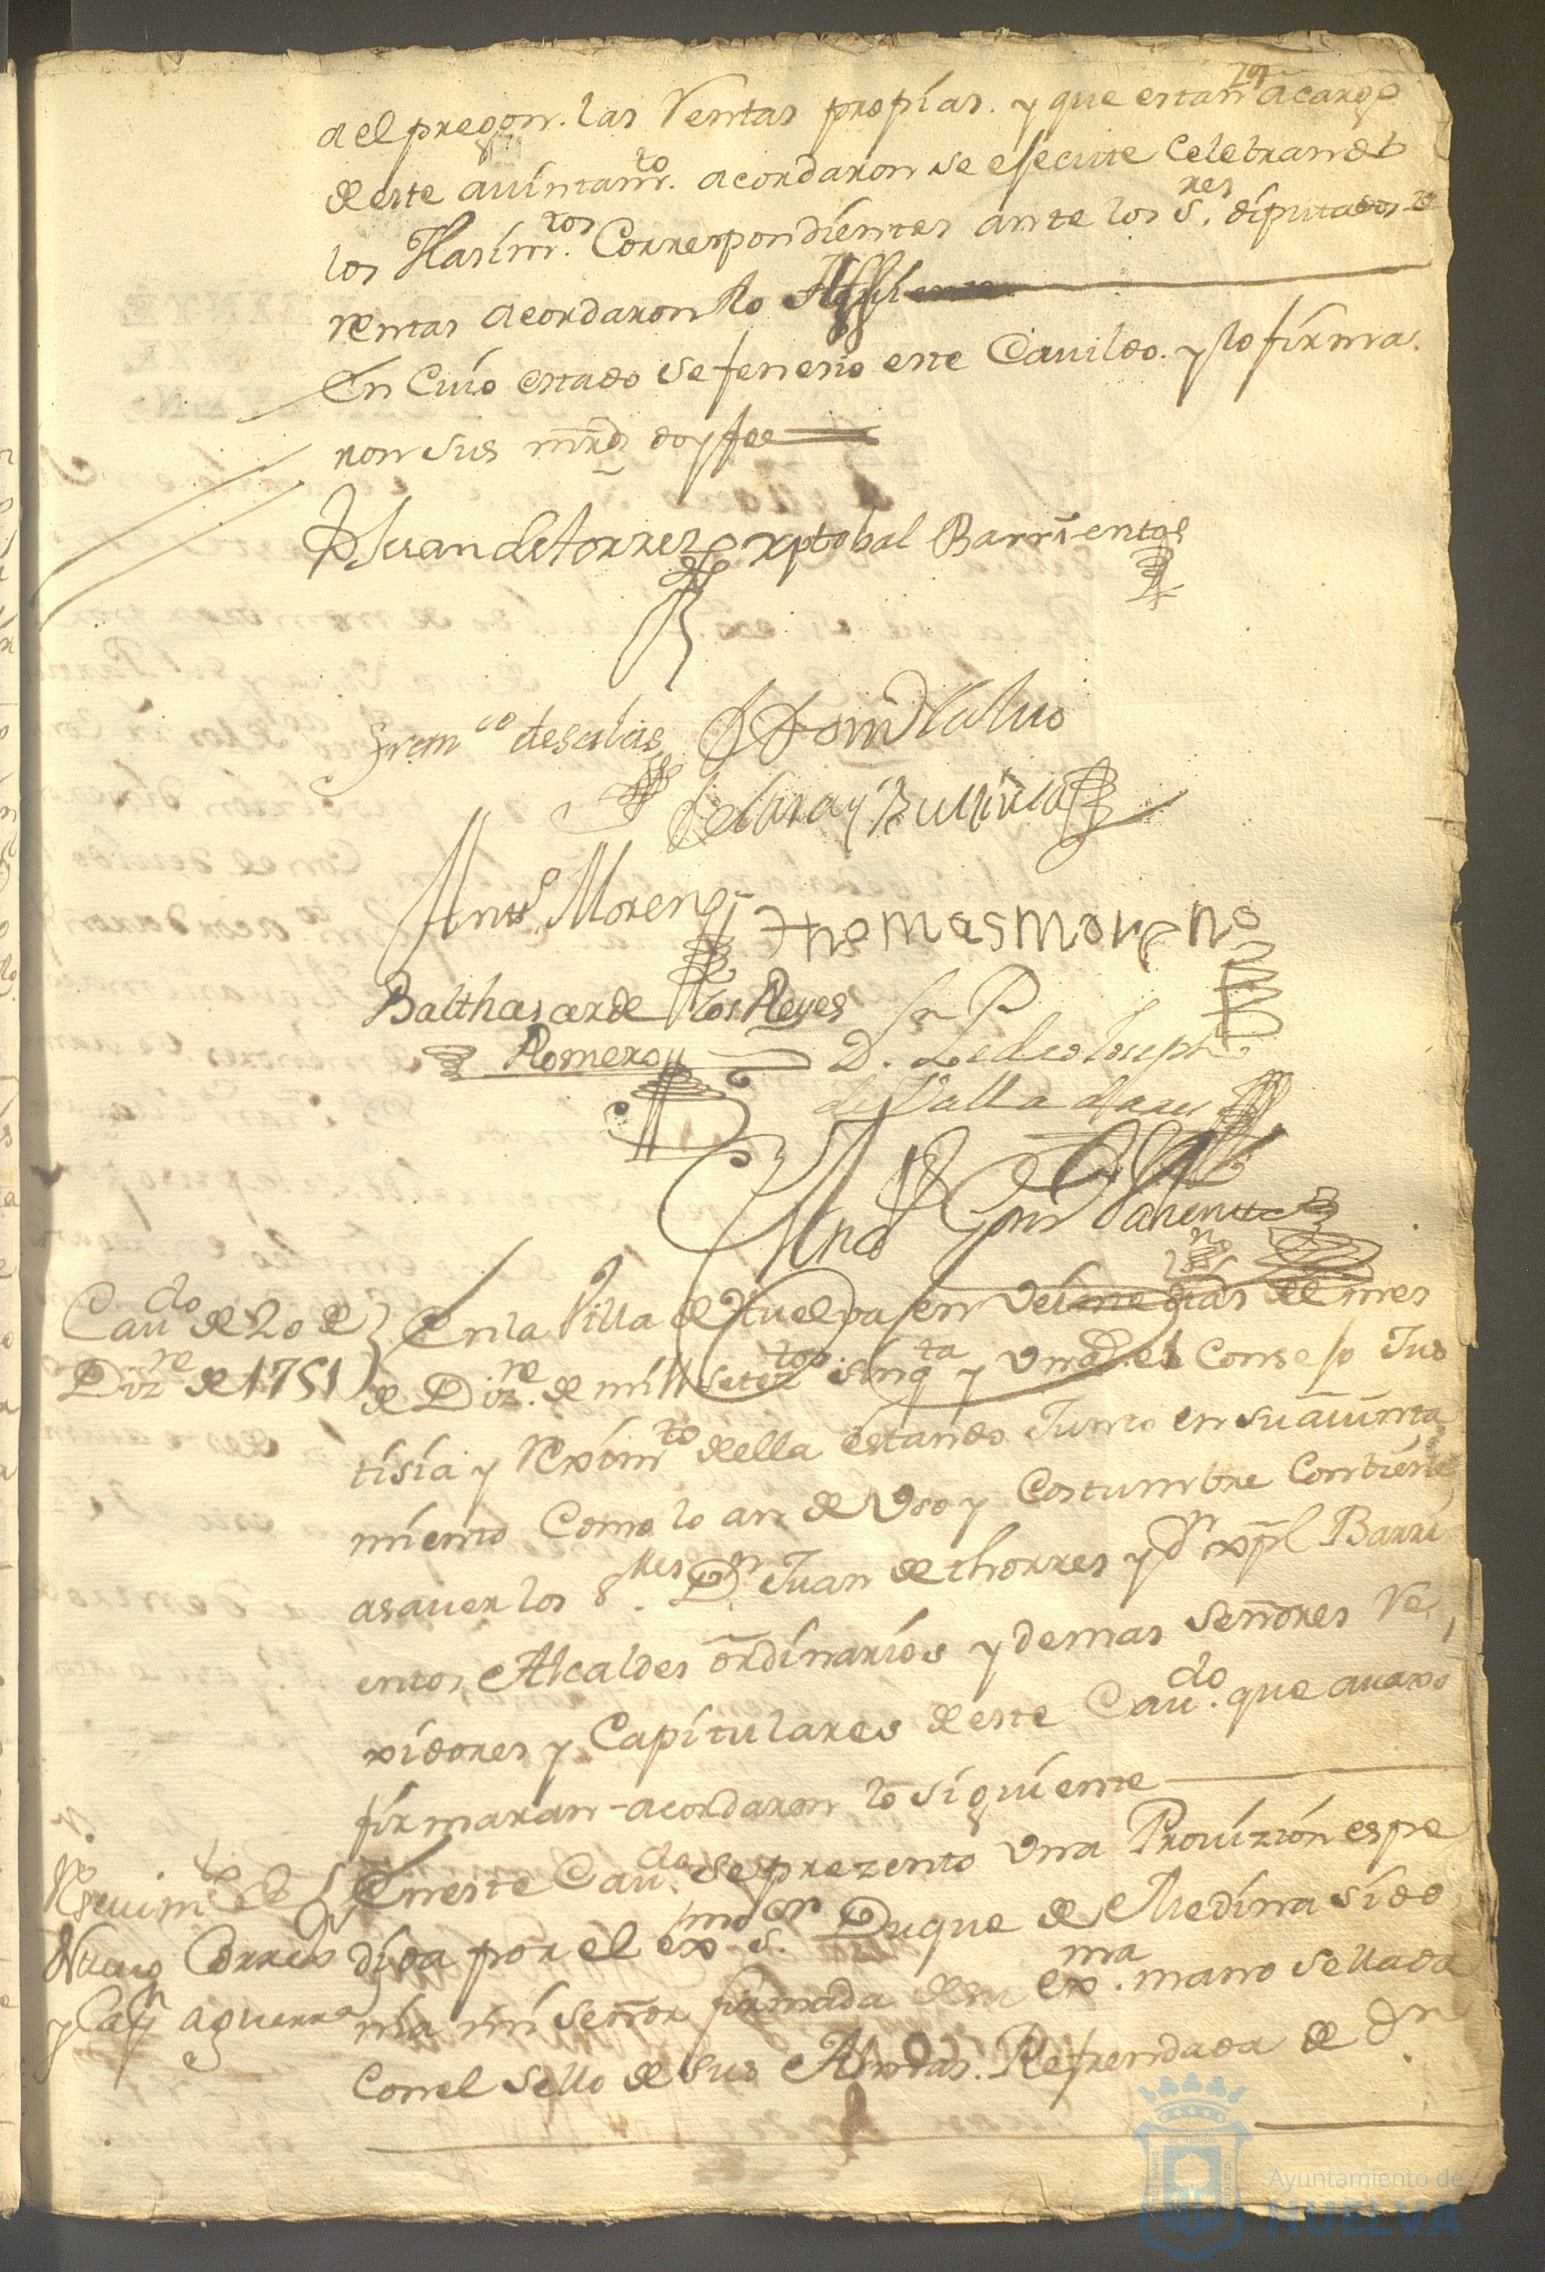 ael pregon. las Rentas propias. y que estan a cargo
de este auintam.to acordaron se esecute Celebrando
los Hasim.tos Correspondientes ante los S.res diputados de
rentas acordaron lo
En Cuio estado se feneció este Cauildo. y lo firma
ron sus mrds doy fee
Dn Juan de torres xptobal Barrientos
Fran.co de salas
Anto. Moreno thomas moreno
Balthasar de los Reyes
Romero
D. Pedro Joseph
de Valladares
Cau.do de 20 de
Diz.re de 1751
En la Villa de Huelva en veinte dias del mes
de Diz.re de mill setez.tos sinq.ta y Uno el Conselo Jus
tisia y Reximto della estando Junto en su auinta
miento Como lo an de Uso y Costumbre Combiene
asauer los S.res Dn Juan de thorres y Dn xpl Barri
entos Alcaldes ordinarios y demas señores Re
xidores y Capitulares de este Cau.do que auaxo
firmaran acordaron lo siguiente
Reseuim.to de
Nueuo Corre
y Capn aguerra
En este Cau.do se prezento Una Prouizion espe
dida por el exmo S.or Duque de Medina Sido
nia mi señor firmada de su ex.ma mano sellada
Con el sello de sus Armas. Refrendada de Dn
Ayuntamiento de
HUELVA